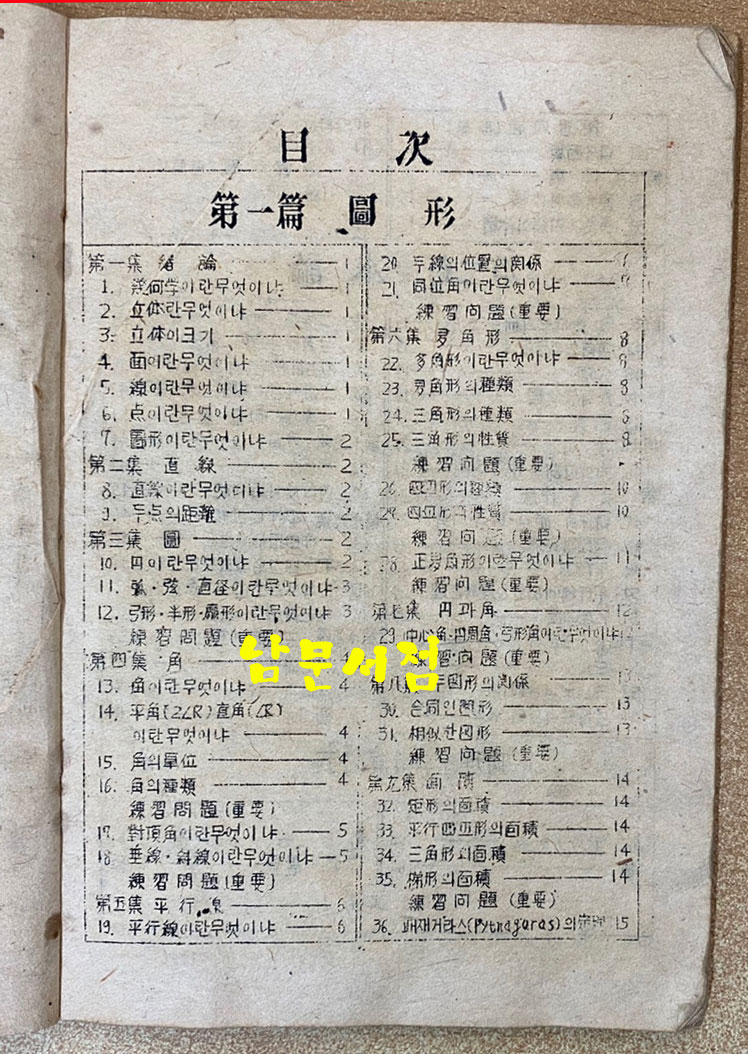 目 次
第一篇 圖 形
第一集 緖 論 1
1. 幾何学이란무엇이냐 1
2. 立体란무엇이냐 1
3. 立体의크기 1
4. 面이란무엇이냐 1
5. 線이란무엇이냐 1
6. 点이란무엇이냐 1
7. 圖形이란무엇이냐 2
第二集 直 線 2
8. 直線이란무엇이냐 2
9. 두点의距離 2
第三集 圖 2
10. 円이란무엇이냐 2
11. 弧·弦·直径이란무엇이냐 3
12. 弓形·半形·扇形이란무엇이냐 3
練習問題(重要)
第四集 角
13. 角이란무엇이냐 4
14. 平角(2∠R)直角(∠R)
이란무엇이냐 4
15. 角의單位 4
16. 角의種類 4
練習問題(重要)
17. 對頂角이란무엇이냐 5
18. 垂線·斜線이란무엇이냐 5
練習問題(重要)
第五集 平行 6
19. 平行線이란무엇이냐 6
20. 두線의位置의関係
21. 同位角이란무엇이냐
練習问題(重要)
第六集 多角形 8
22. 多角形이란무엇이냐 8
23. 多角形의種類 8
24. 三角形의種類
25. 三角形의性質 8
練習问題(重要)
26. 四辺形의種類 10
四辺形의性質 10
練習问題(重要)
28. 正多角形이란무엇이냐 11
練習问題(重要)
第七集 円과角 12
29. 中心角·円周角·弓形角이란무엇이냐 12
練習·问題(重要)
第八 두図形의関係 13
30. 合同인図形 13
31. 相似한図形 13
練習问題(重要)
第九集 面積 14
32. 矩形의面積 14
33. 平行四辺形의面積 14
34. 三角形의面積 14
35. 梯形의面積 14
練習问題(重要)
36. 피재거라스(Pytnagaras)의定理 15
남문서점